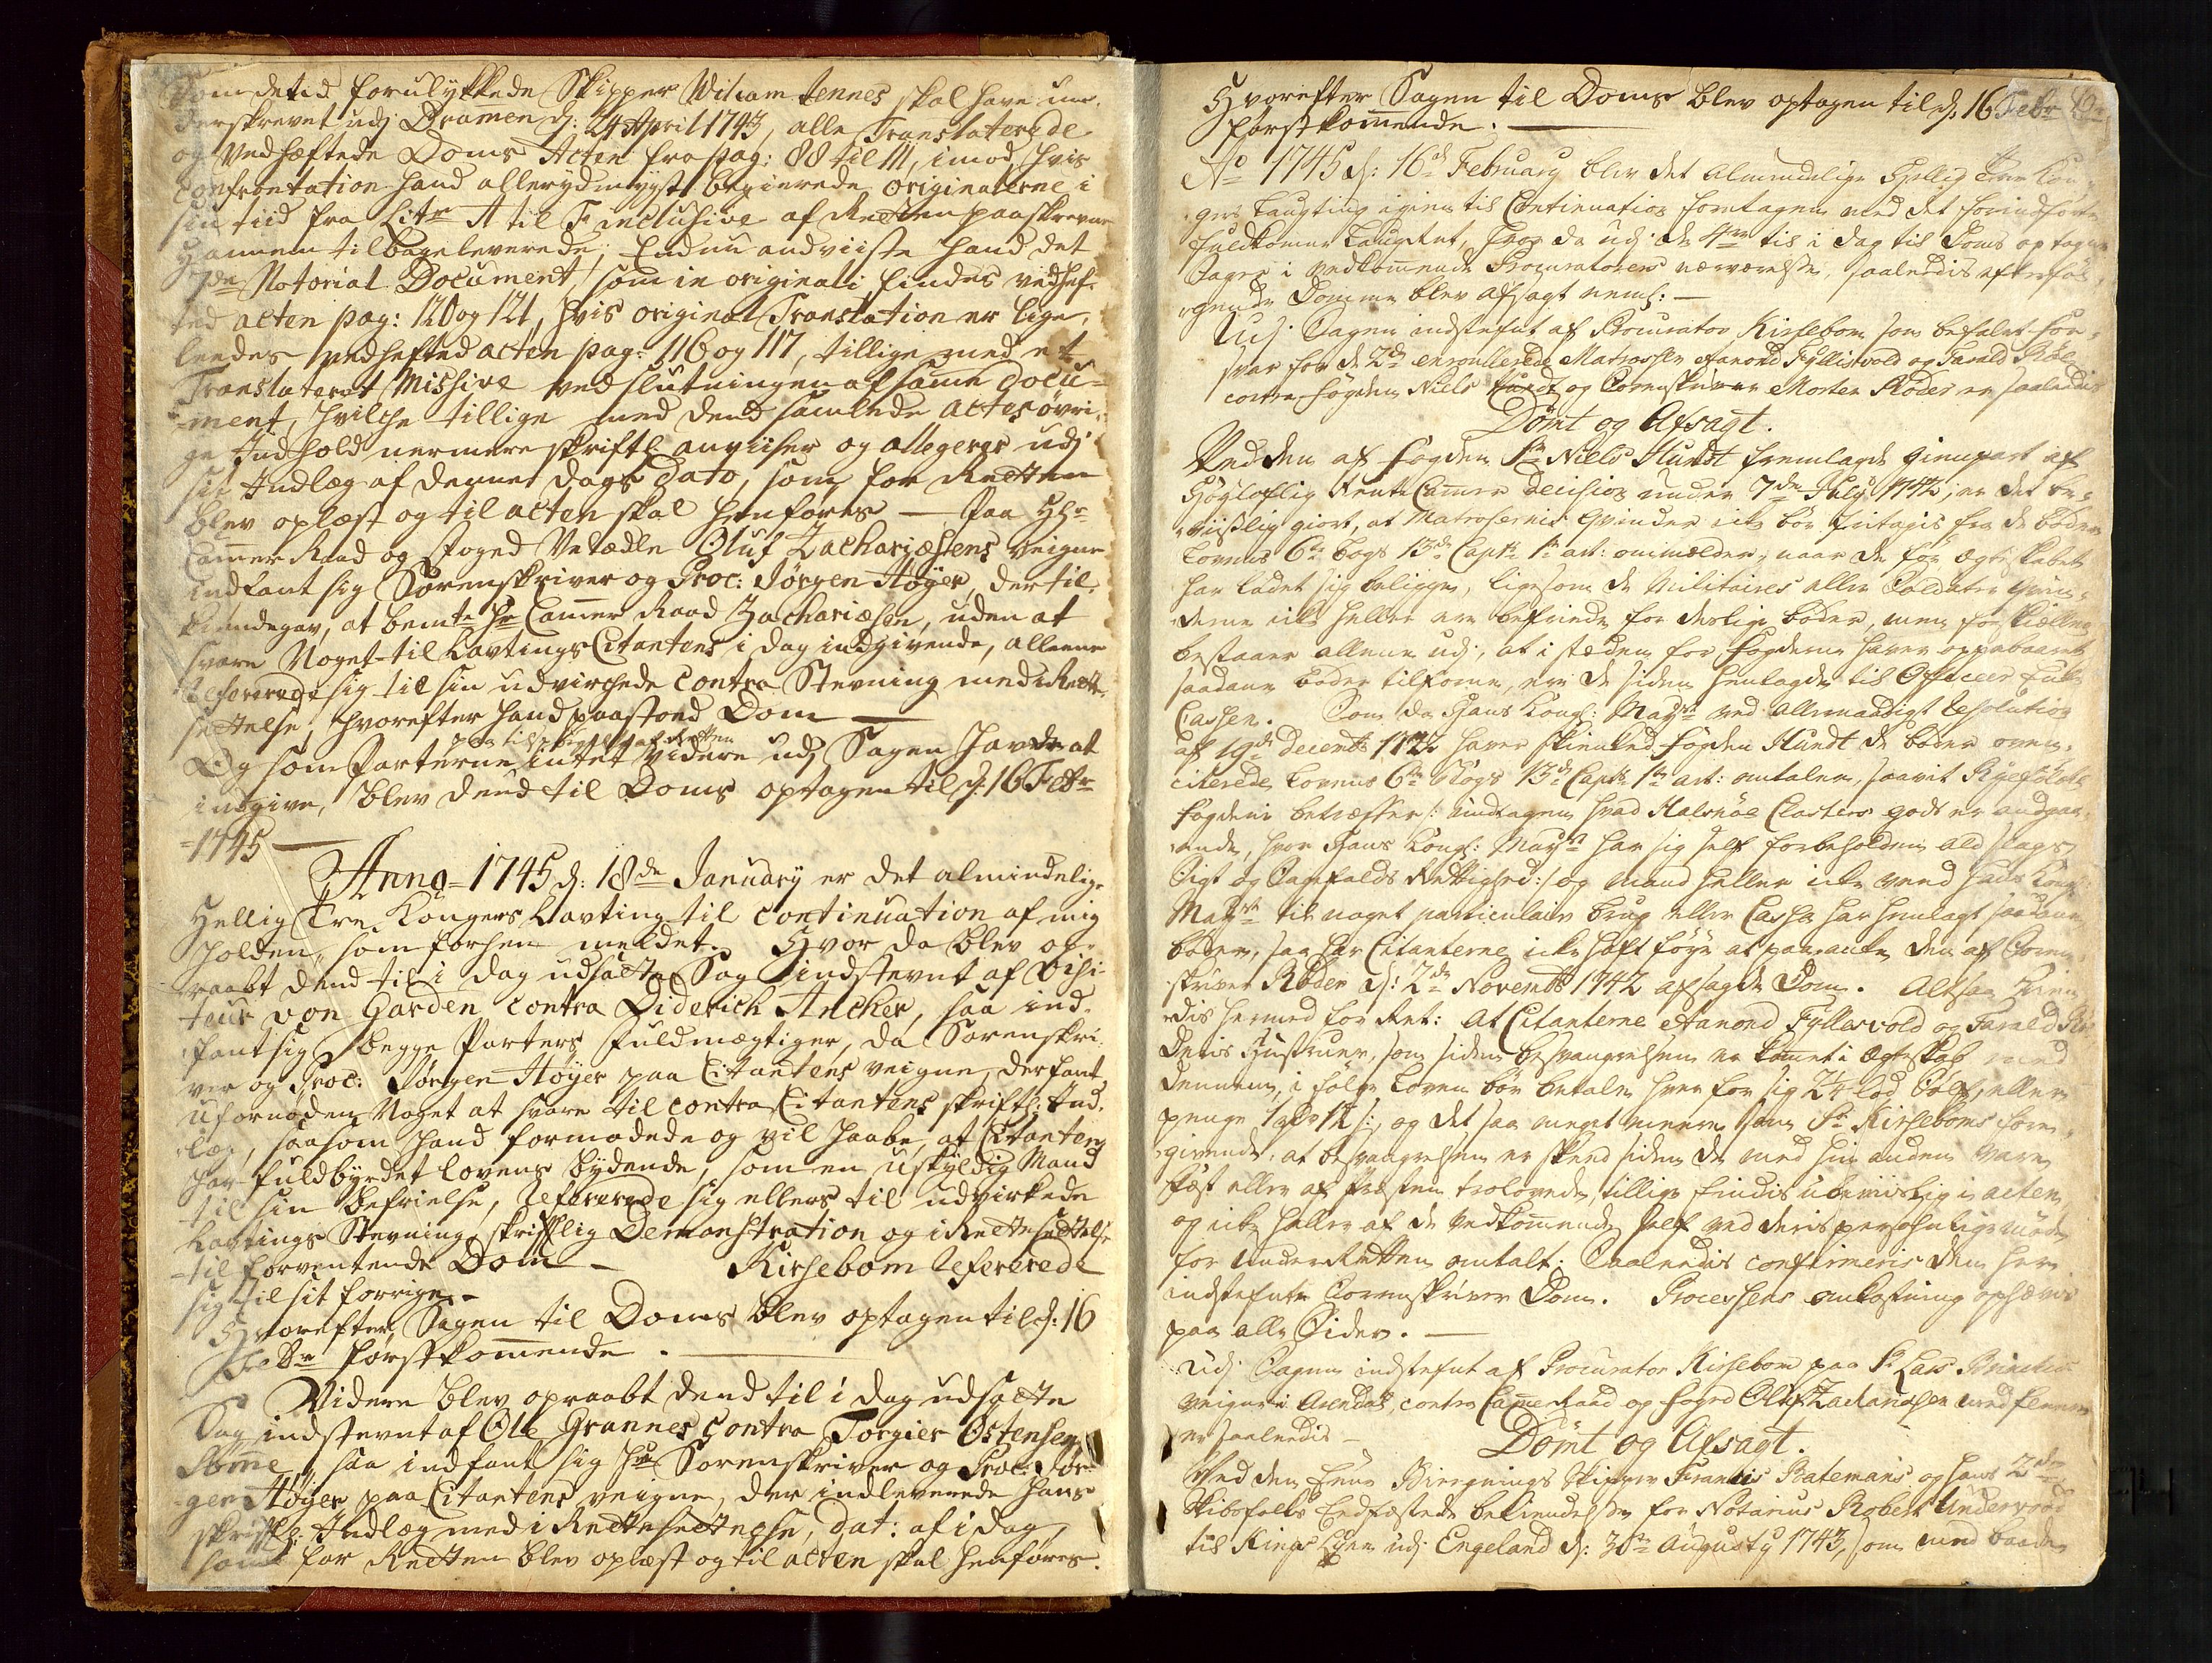 som det ed forulykkede Skipper Wiliam tennes skal have un¬
derskrevet udj Dramen d: 24 April 1743, alle Translaterede
og Vedhæftede Doms Acten fra pag: 88 til 111, imod, hvis
Confrontation hand allerydmygst begierede originalerne i
sin tiid fra Litr A til F inclusive af Retten paaskrevne
Hannem tilbageleverede; Endnu andviiste hand det
7de Notorial Document, som in originali findes vedhef¬
ted acten pag: 120 og 121, hvis original Translation er lige¬
leedes vedhefted acten pag: 116 og 117, tillige med et
Translaterat Missive ved slutningen af samme docu¬
ment, hvilche tillige med dend samlede actes øvri¬
ge Indhold nermere skriftl anviiser og allegeres udj
sit Indlæg af denne dags dato, som for Retten
blev oplæst og til acten skal henføres — Paa Hr
Cammer Raad og Foged Velædle Oluf Zachariæsens veigne
indfant sig Sorenskriver og Proc: Jørgen Høyer, der til¬
kiendegav, at bemte Hr Cammer Raad Zachariæsen, uden at
svare Noget til LavtingsCitantens i dag indgivende, alleene
Refererede sig til sin udvirchede Contra Stevning med i Rette¬
settelse, hvorefter hand paastoed Dom —
paa tilspørgelse af Retten
Og som Parterne intet videre udj Sagen havde at
indgive, blev dend til Doms optagen til d: 16 Febr
1745 —
Anno 1745 d: 18de January er det almindelige
Hellig Tre Kongers Lavting til continuation af mig
holden, som forhen meldet. Hvor da blev op¬
raabt dend til i dag udsatte Sag indstevnt af Visi¬
teur von Garden contra Diderich Ancher, saa ind¬
fant sig begge Parters fuldmægtiger, da Sorenskri¬
ver og Proc: Jørgen Høyer paa Citantens veigne, der fant
ufornøden Noget at svare til contra Citantens skriftl: Ind¬
læg, saasom hand formodede og vil haabe, at Citanten
har fuldbyrdet lovens bydende, som en uskyldig Mand
til sin befrielse, Refererede sig ellers til udvirkede
Lavtings Stevning, skriftlig Demonstration og i Rettesettelse
til forventende Dom — Kirsebom Refererede
sig til sit forrige. —
Hvorefter Sagen til Doms blev optagen til d: 16
Febr førstkommende. —
Videre blev opraabt dend til i dag udsatte
Sag indstevnt af Ole Grannes Contra Torgier Ostensen
Somme, saa indfant sig Hr Sorenskriver og Proc: Jør¬
gen Høyer paa Citantens veigne, der indleverede hans
skriftl: Indlæg med i Rettesettelse, dat: af i dag,
som for Retten blev oplæst og til acten skal henføres.
Hvorefter Sagen til Doms blev optagen til d: 16 Febr
førstkommende. —
Ao 1745 d: 16de February blev det Almindelige Hellig tre Kon¬
gers Laugting igien til Continuation foretagen med det forindførte
fuldkomne LaugRet, hvor da udj de 4re til i dag til Doms optagne
Sager i vedkommende Procuratorers nærværelse, saaleedis efterføl¬
gende Domme blev afsagt neml: —
Udj Sagen indstefnt af Procurator Kirsebom som befalet for¬
svar for de 2de enroullerede Matrosser Aanond Fyllisvold og Tarald Røe
contra fogden Niels Hundt og Sorenskriver Morten Røder er saaleedis
Dømt og Afsagt.
Ved den af fogden Sr Niels Hundt fremlagde gienpart af
Høyloflig RenteCammer Decision under 7de July 1742, er det be¬
viißlig giort, at Matrosernis qvinder icke bør fritagis fra de bøder
Lovens 6te bogs 13de Capit: 1te art: ommelder, naar de før ægteskabet
har ladet sig beligge, ligesom de Militaires eller Soldater qvin¬
derne icke heller ere befriede for deslige bøder, men forskiellen
bestaaer alleene udj, at i stæden for fogderne haver oppebaaret
saadanne bøder tilforne, ere de siden henlagde til Officeer Enke
Cassen. Som da Hans Kongl: Mayst ved allernaadigst Resolution
af 19de Decembr 1742 haver skienked fogden Hundt de bøder oven¬
citerede Lovens 6te Bogs 13de Capit: 1te art: omtaler, saavit Ryefølche
fogderie betreffer /: undtagen hvad Halsnøe Closters gods er andgaa¬
ende, hvor Hans Kongl: Mayst har sig self forbeholden ald slags
Sigt og Sagefalds Rettighed :/ og mand heller icke veed Hans Kongl:
Mayst til noget particulair brug eller Cassa har henlagt saadanne
bøder, saa har Citanterne icke haft føye at paaancke den af Soren¬
skriver Røder d: 2de Novembr 1742 afsagde Dom. Altsaa kien¬
dis hermed for Ret: At Citanterne Aanond Fyllesvold og Tarald Røe
Deris Hustruer, som siden besvangrelsen er kommet i Ægteskab med
dennem, i følge Loven bør betale hver for sig 2 1/4 lod Sølf, eller
penge 1 rdr 12 s:, og det saa meget meere som Sr Kirseboms fore¬
givende, at besvangrelsen er skeed siden de med hin anden vare
fæst eller af Præsten trolovede, tillige findis ubeviislig i acten
og icke heller af de vedkommende self ved deris personlige møde
for underRetten omtalt. Saaleedis confirmeris den her
indstefnte Sorenskriver Dom. Processens omkostning ophæves
paa alle Sider. —
Udj Sagen indstefnt af Procurator Kirsebom paa Sr Lars Brinchs
veigne i Arendal, contra CammerRaad og foged Oluf Zachariæsen med fleere
er saaleedis —
Dømt og Afsagt.
Ved den fuus Bierrgnings Skipper Francis Batemans og hans 2de
Skibsfolks Eedfæstede bekiendelse for Notarius Robert Underwood
til Kings Lynn udj Engeland d: 30te Augusty 1743, som med baade